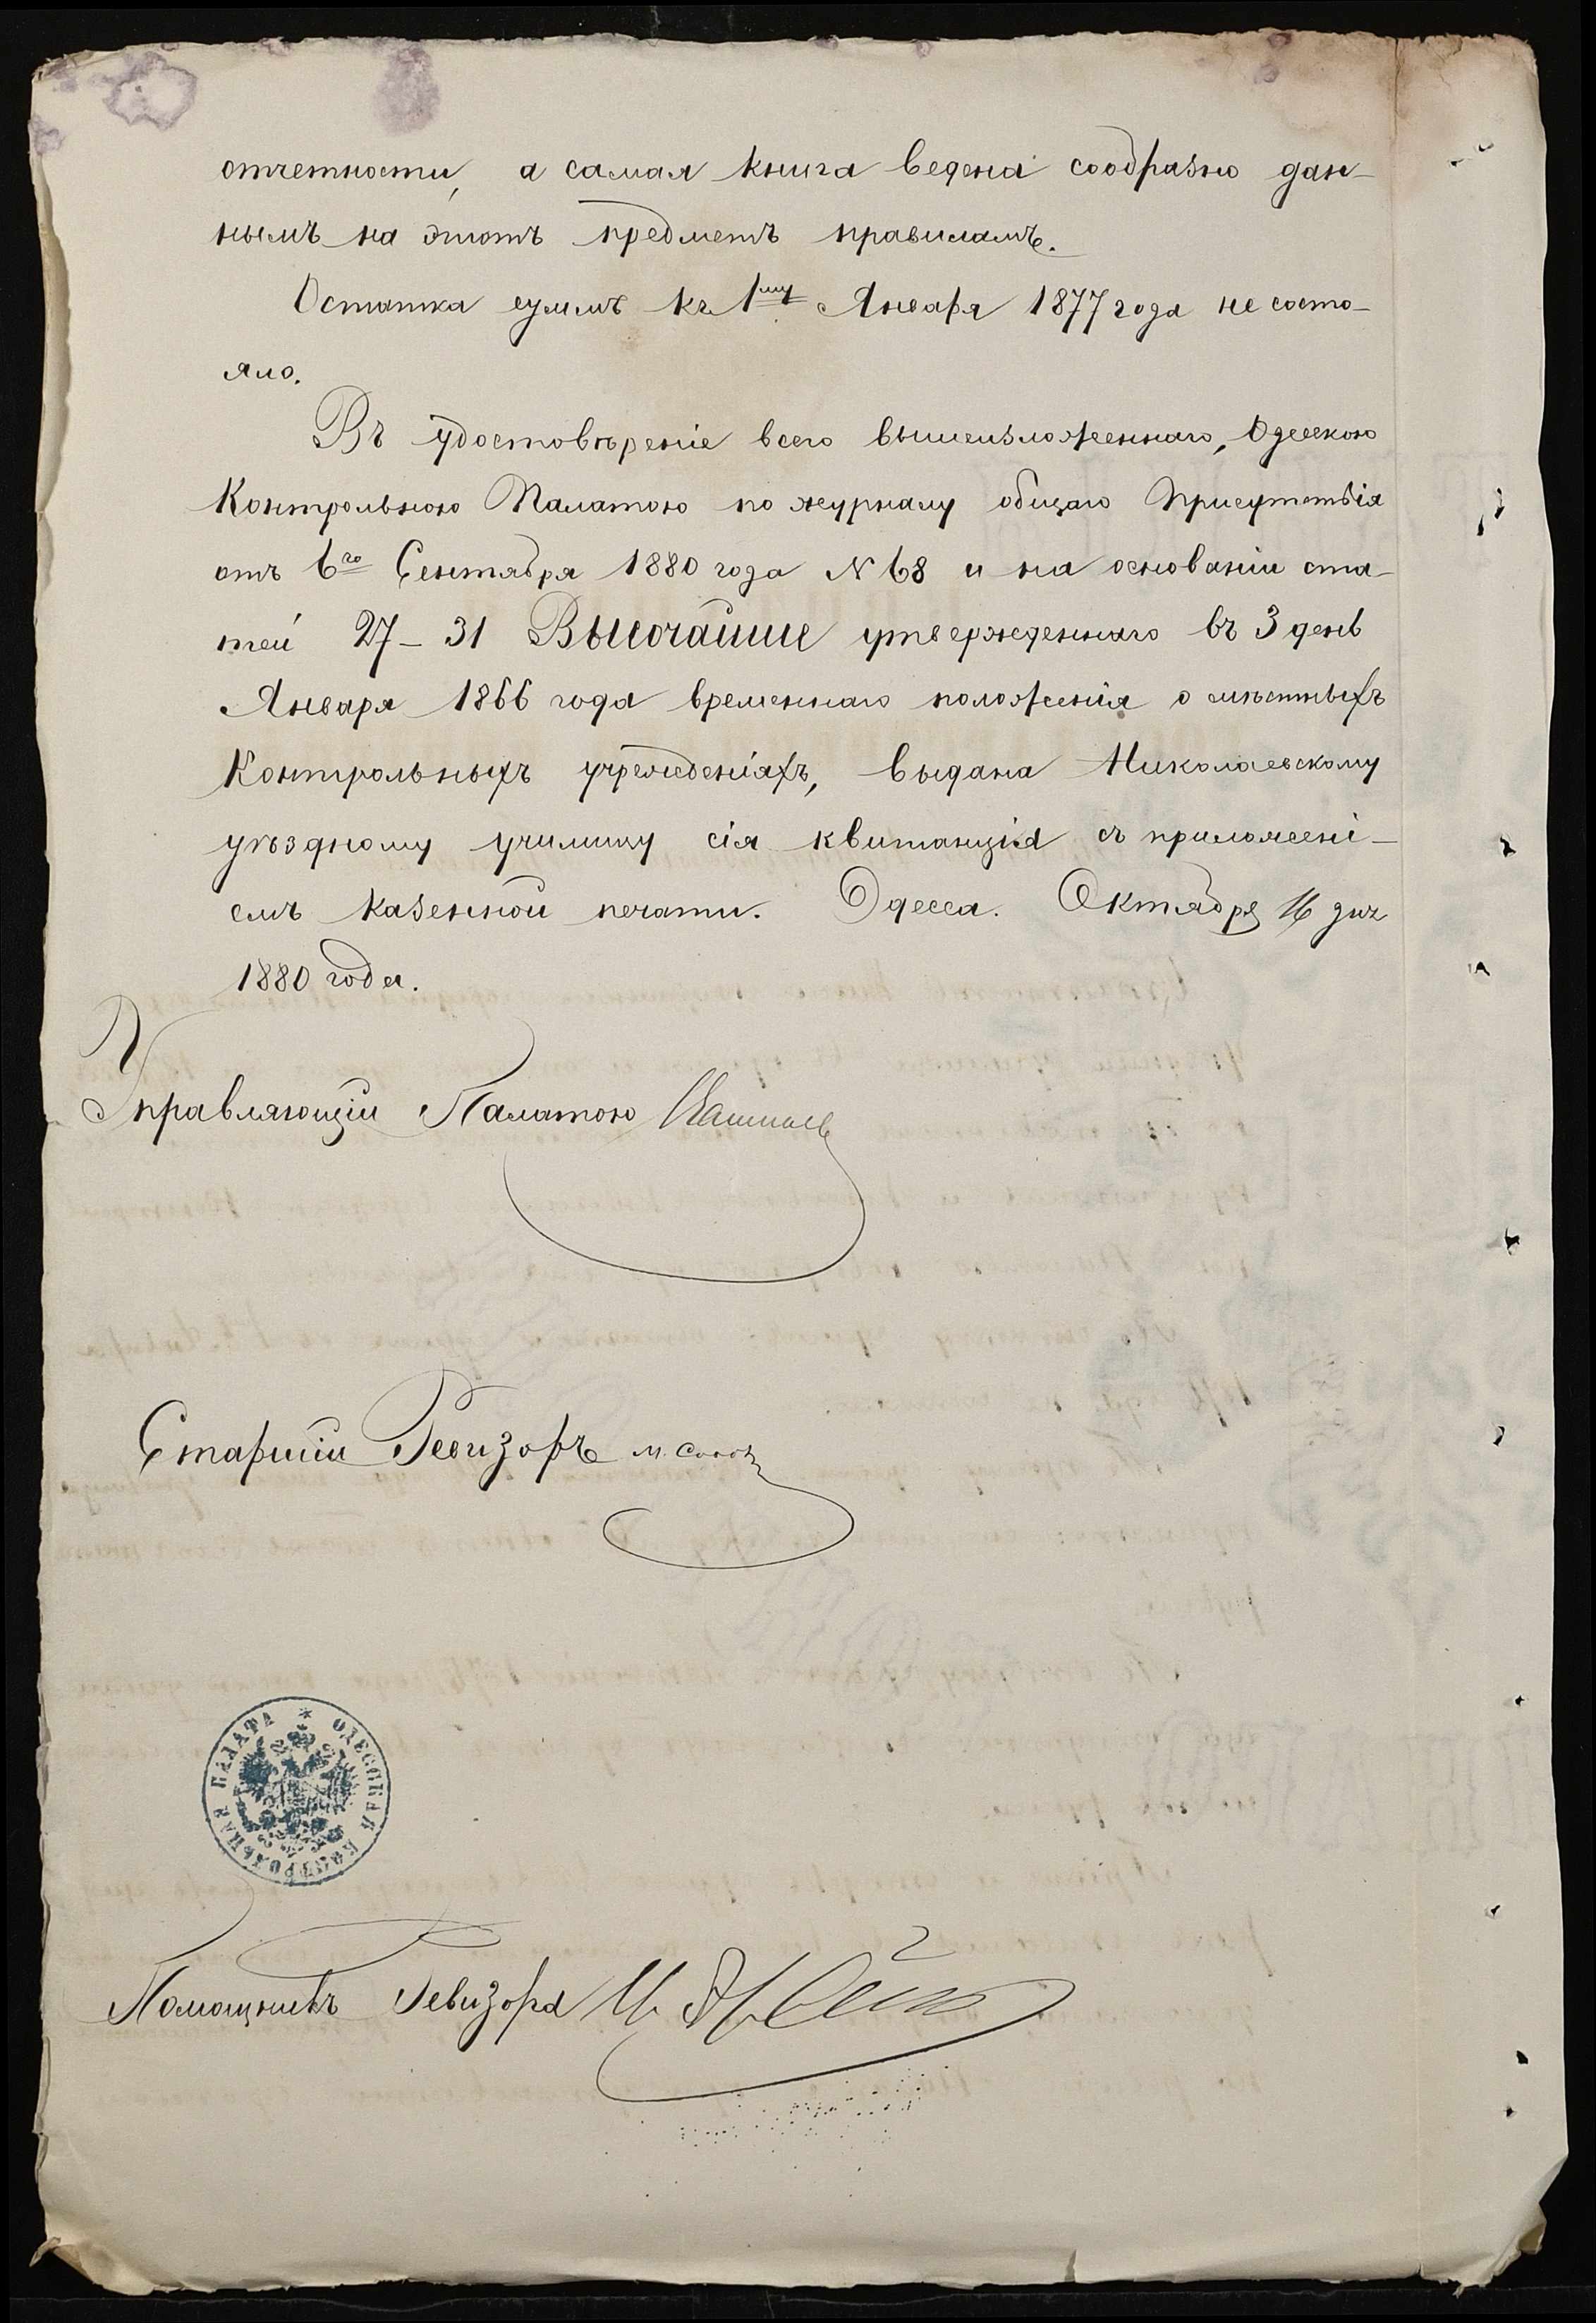 отчетности, а самая книга ведена сообразно дан-
нымъ на этотъ предметъ правиламъ.
Остатка суммъ къ 1му Января 1877 года не состо-
яло.
Въ удостовѣреніе всего вышеизложеннаго, Одесскою
Контрольною Палатою по журналу общаго Присутствія
отъ 6го Сентября 1880 года N 68 и на основаніи ста-
тей 27-31 Высочайше утвержденнаго въ 3 день
Января 1866 года временнаго положенія о мѣстныхъ
Контрольныхъ учрежденіяхъ, выдана Николаевскому
уѣздному училищу сія квитанція съ приложені-
емъ казенной печати. Одесса. Октября 16 дня
1880 года.
Управляющій Палатою
Старшій Ревизоръ
ОДЕССКАЯ КОНТРОЛЬНАЯ ПАЛАТА *
Помощникъ Ревизора